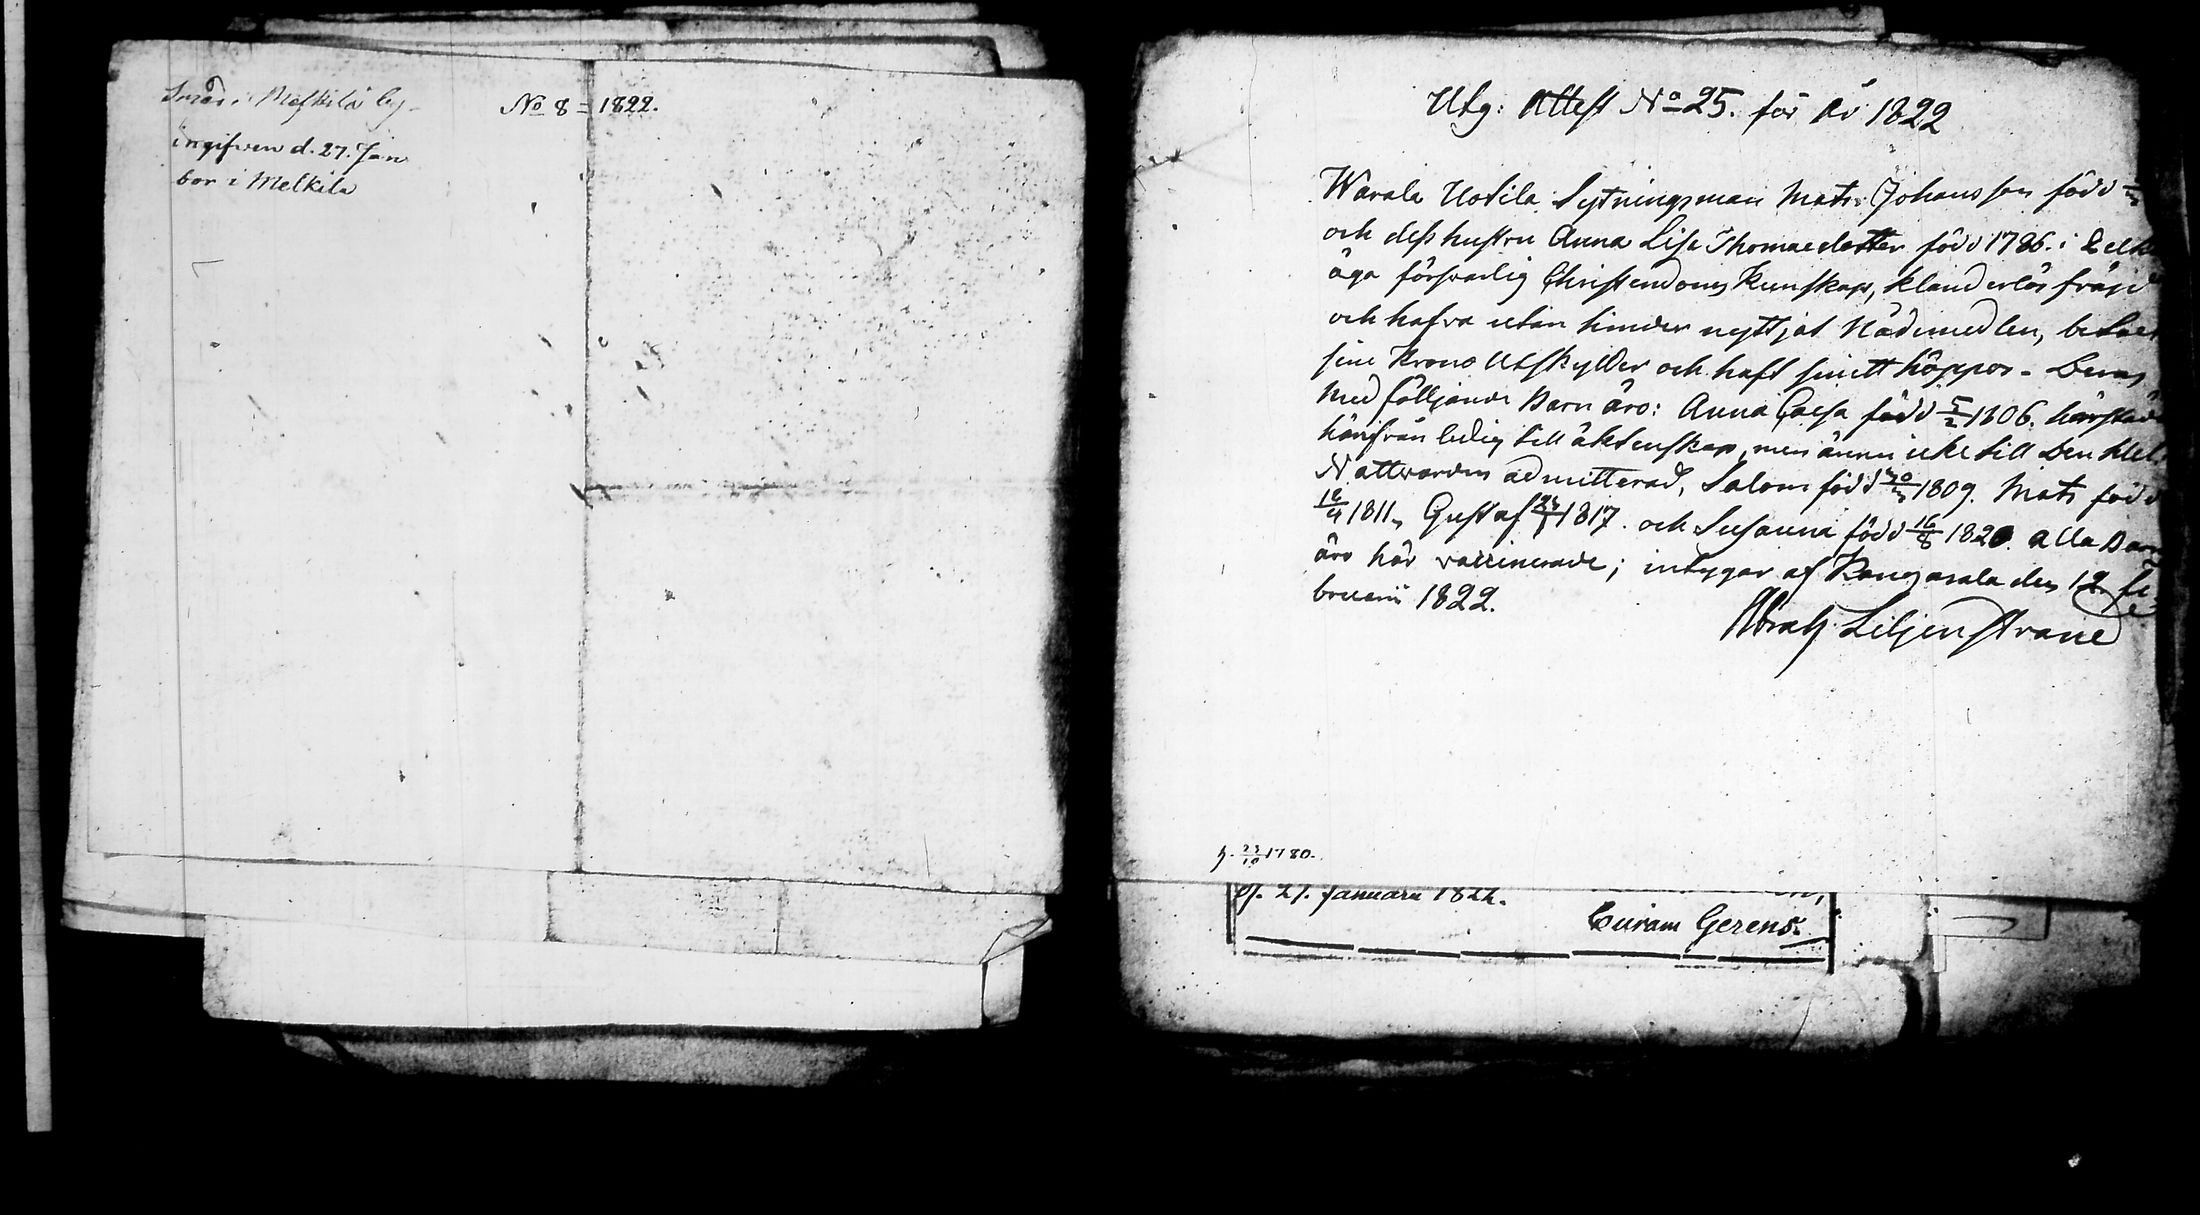 i Melkilä by
ingifwen d. 27. Jan
bor i Melkila
No 8 = 1822.
Utg: Attest No 25. för År 1822
Warala Uotila Sytningsman Mats Johansson född
och dess hustru Anna Lisa Thomaedotter född 1786. i
äga försvarlig Christendoms Kunskap, klanderlös fräjd
och hafva utan hinder nyttjat Nådemedlen, betalt
sine Krono Utskylder och haft smitt köppor - Deras
Medföljande Barn äro: Anna Cajsa född 5/2 1806. härstädes
härifrån ledig till äktenskap, men ännu icke till Den Hel.
Nattvarden admitterad, Salom född 1809. Mats född
16/4 1811, Gustaf 1817. och Susanna född 16/8 1820. Alla Barn
äro här vaccinerade; intygar af Kangasala den 12 fe
bruarii 1822.
Abrah: Liljenstrand
h. 23/10 1780.
27. Januarii 1822.
Curam Gerens.